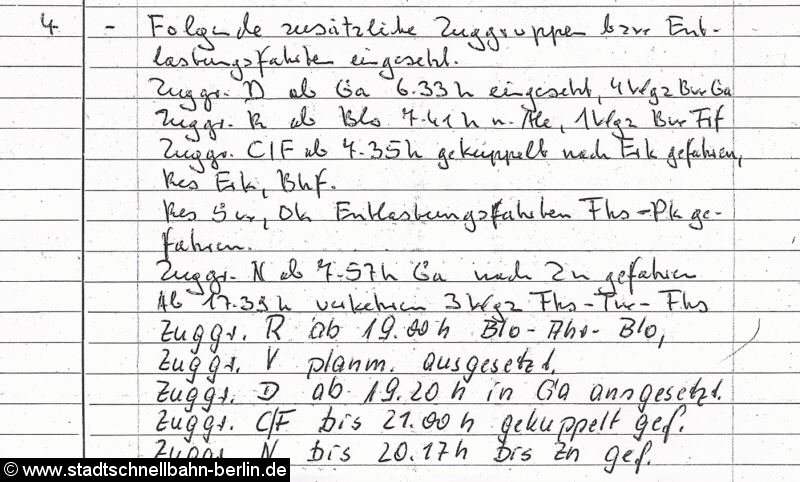 4. - Folgende zusätzliche Zuggruppen bzw. Ent-
lastungsfahrten eingesetzt.
Zuggr. D ab Ga 6.33 h eingesetzt, 4 Wgz Bw Ga
Zuggr. R ab Blo 7.41 h n. Ahr, 1 Wgz Bw Frf
Zuggr. C/F ab 7.35 h gekuppelt nach Erk gefahren,
Res Erk, Bhf.
Res Sw, Ok Entlastungsfahrten Fhs-Pk ge-
fahren.
Zuggr. N ab 7.57 h Ga nach Zn gefahren
Ab 17.39 h verkehren 3 Wgz Fhs-Tw-Fhs
Zuggr. R ab 19.00 h Blo-Ahr-Blo,
Zuggr. V planm. ausgesetzt.
Zuggr. D ab 19.20 h in Ga ausgesetzt.
Zuggr. C/F bis 21.00 h gekuppelt gef.
Zuggr. N bis 20.17 h bis Zn gef.
© www.stadtschnellbahn-berlin.de